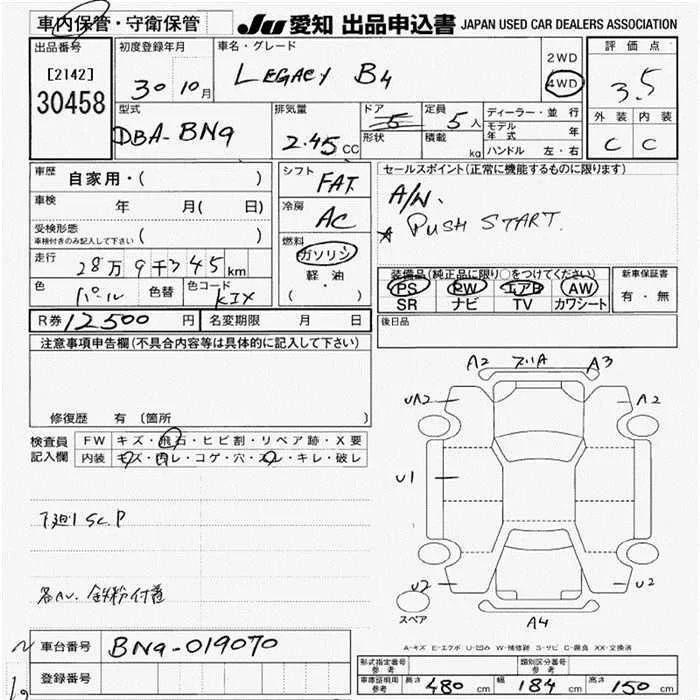 車内保管・守衛保管
JU 愛知 出品申込書 JAPAN USED CAR DEALERS ASSOCIATION
出品番号
[2142]
30458
初度登録年月
30 10月
車名・グレード
LEGACY B4
2WD
4WD
評価点
3.5
外装 内装
C C
型式
DBA-BN9
排気量
2.45 CC
ドア
5
形状
定員
5人
積載
kg
ディーラー・並行
モデル年式 年
ハンドル 左・右
車歴
自家用・( )
車検
年 月( 日)
受検形態
車検付きのみ記入して下さい ( )
走行
28万9千345km
色
パール
色替
色コード
K1X
シフト
FAT
冷房
AC
燃料
ガソリン
軽・油
( ・ )
セールスポイント(正常に機能するものに限ります)
A/W.
* PUSH START.
装備品(純正品に限り○をつけてください)
PS PW エアB AW
SR ナビ TV カワシート
新車保証書
有・無
R券 12500円
名変期限 月 日
後日品
注意事項申告欄(不具合内容等は具体的に記入して下さい)
修復歴 有 〔箇所 〕
検査員記入欄
FW キズ・飛石・ヒビ割・リペア跡・X要
内装 キズ・肉レ・コゲ・穴・スレ・キレ・破レ
下廻りSC.P
鉄粉付着
A2 A3
UA2 A2
U1
U2 U2
A4
スペア
A-キズ E-エクボ U-凹み W-補修跡 S-サビ C-腐食 XX-交換済
車台番号
BN9-019070
登録番号
形式指定番号
参考
類別区分番号
参考
車庫証明用
参考
長さ 480 cm 幅 184 cm 高さ 150 cm